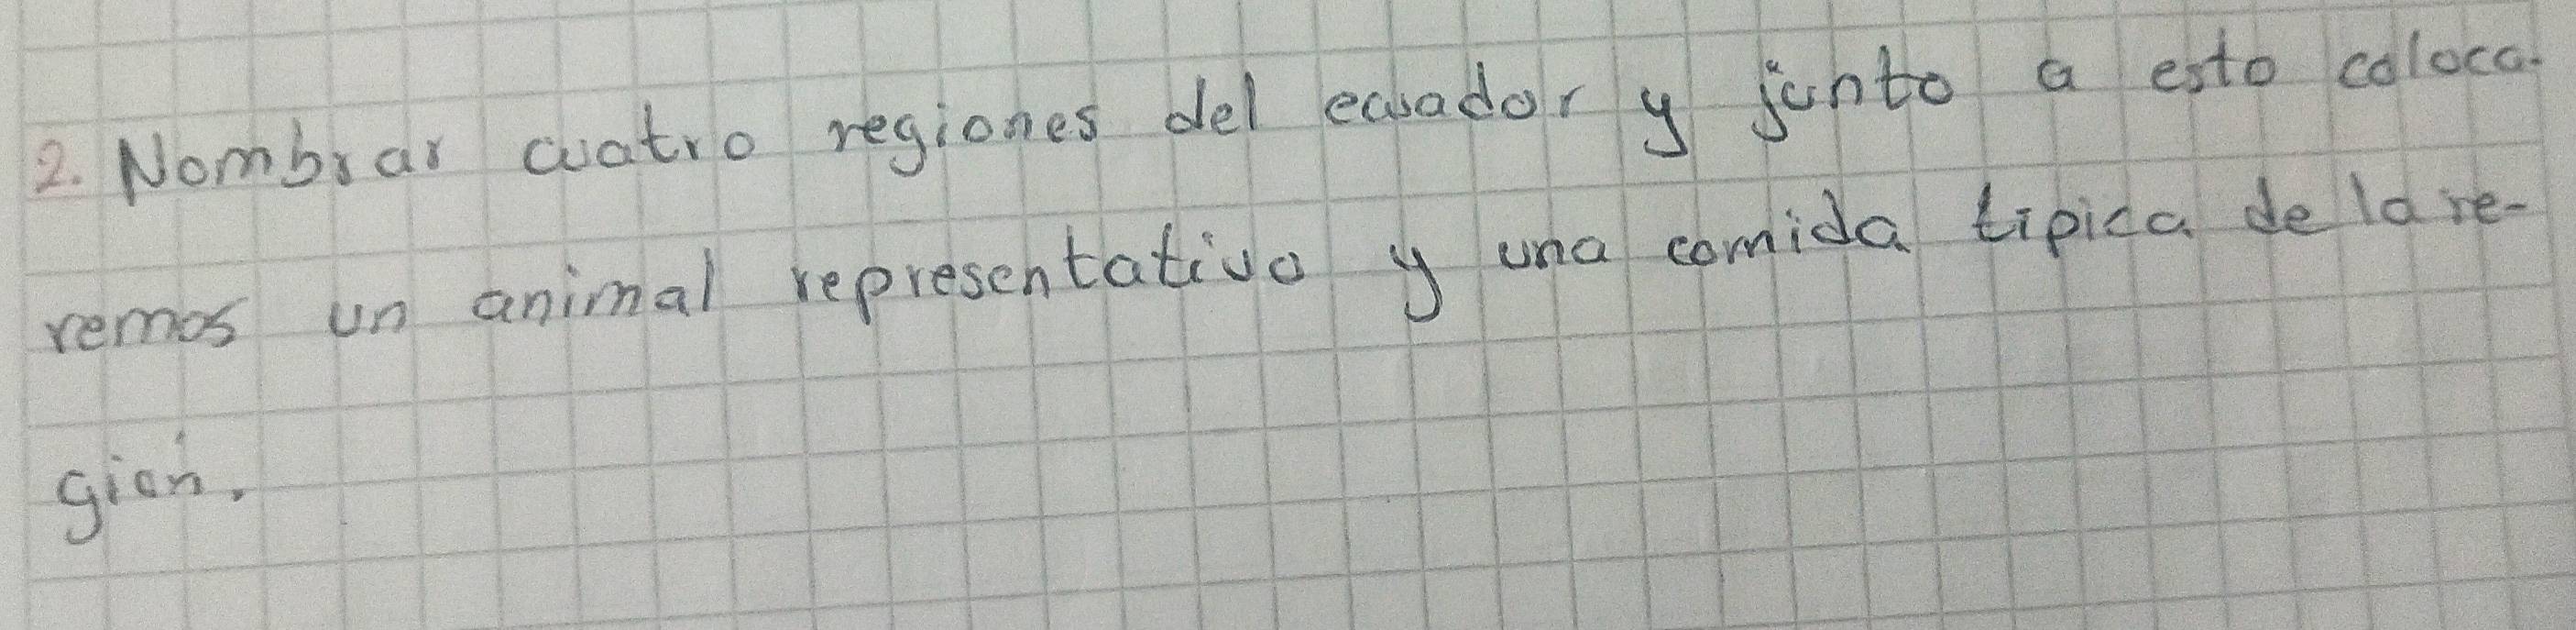 2. Nombrar cuatro regiones del ecuador y junto a esto coloca-
remos un animal representativo y una comida tipica de la re-
gión.